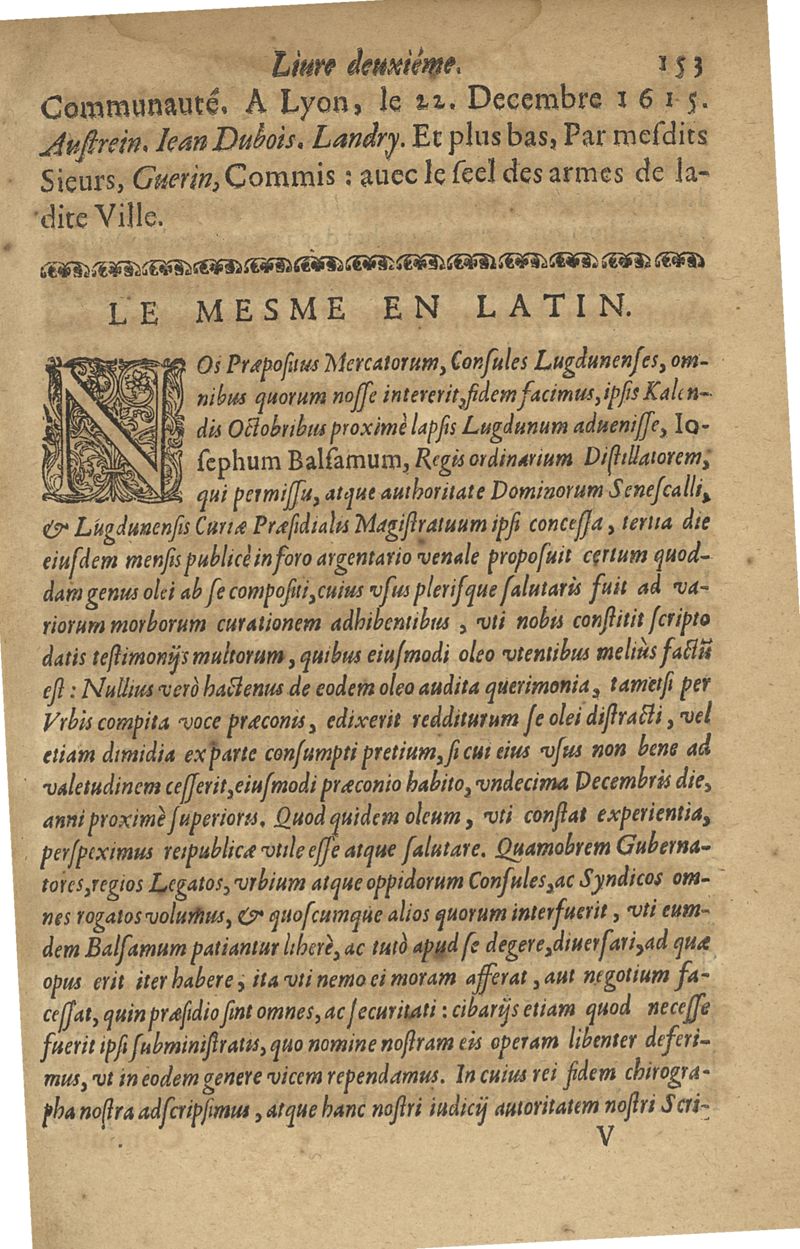 Liure deuxiéme. 153
Communauté. A Lyon, le 22. Decembre 1615.
Auſtrein. Iean Dubois. Landry. Et plus bas, Par meſdits
Sieurs, Guerin, Commis : auec le ſeel des armes de la-
dite Ville.
LE MESME EN LATIN.
NOs Præpoſitus Mercatorum, Conſules Lugdunenſes, om-
nibus quorum noſſe intererit, fidem facimus, ipſis Kalen-
dis Octobribus proximè lapſis Lugdunum adueniſſe, Io-
ſephum Balſamum, Regis ordinarium Diſtillatorem,
qui permiſſu, atque authoritate Dominorum Seneſcalli,
& Lugdunenſis Curiæ Præſidialis Magiſtratuum ipſi conceſſa, tertia die
eiuſdem menſis publicè in foro argentario venale propoſuit certum quod-
dam genus olei ab ſe compoſiti, cuius vſus pleriſque ſalutaris fuit ad va-
riorum morborum curationem adhibentibus, vti nobis conſtitit ſcripto
datis teſtimonijs multorum, quibus eiuſmodi oleo vtentibus meliùs factū
eſt : Nullius verò hactenus de eodem oleo audita querimonia, tametſi per
Vrbis compita voce præconis, edixerit redditurum ſe olei diſtracti, vel
etiam dimidia ex parte conſumpti pretium, ſi cui eius vſus non bene ad
valetudinem ceſſerit, eiuſmodi præconio habito, vndecima Decembris die,
anni proximè ſuperioris. Quod quidem oleum, vti conſtat experientia,
perſpeximus reipublicæ vtile eſſe atque ſalutare. Quamobrem Guberna-
tores, regios Legatos, vrbium atque oppidorum Conſules, ac Syndicos om-
nes rogatos volumus, & quoſcumque alios quorum interfuerit, vti eum-
dem Balſamum patiantur liberè, ac tutò apud ſe degere, diuerſari, ad quæ
opus erit iter habere ; ita vti nemo ei moram afferat, aut negotium fa-
ceſſat, quin præſidio ſint omnes, ac ſecuritati : cibarijs etiam quod neceſſe
fuerit ipſi ſubminiſtratis, quo nomine noſtram eis operam libenter deferi-
mus, vt in eodem genere vicem rependamus. In cuius rei fidem chirogra-
pha noſtra adſcripſimus, atque hanc noſtri iudicij autoritatem noſtri Scri-
V